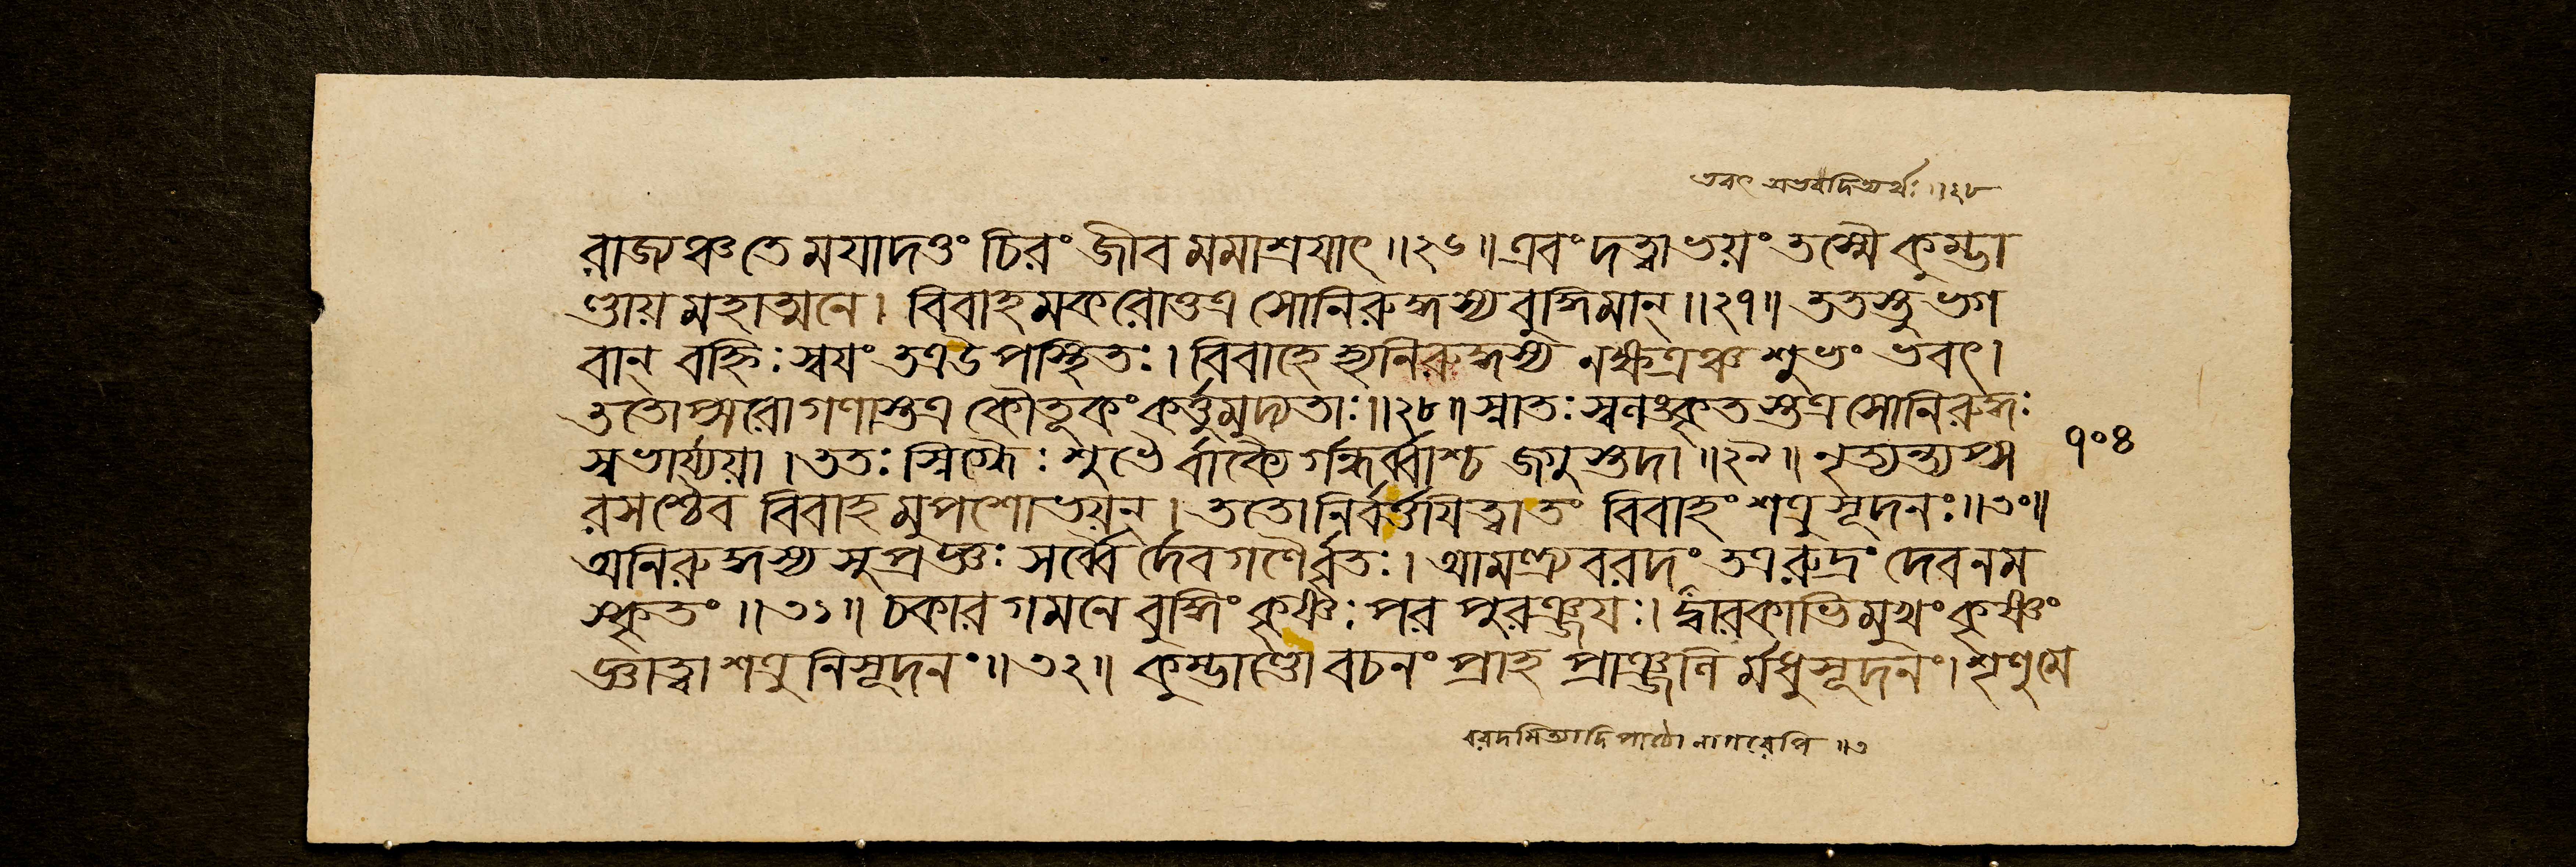 ভবৎ অভবদিত্যর্থঃ ॥২৮
রাজ্যঞ্চ তে ময়াদত্তং চিরং জীব মমাশ্রয়াৎ ॥২৬॥ এবং দত্ত্বাভয়ং তস্মৈ কুম্ভা
ণ্ডায় মহাত্মনে। বিবাহমকরোত্তত্র সোনিরুদ্ধস্য বুদ্ধিমান্ ॥২৭॥ ততস্তু ভগ
বান্ বহ্নিঃ স্বয়ং তত্র উপস্থিতঃ। বিবাহে হ্যনিরুদ্ধস্য নক্ষত্রঞ্চ শুভং ভবৎ।
ততোপ্সরোগণাস্তত্র কৌতূকং কর্ত্তুমুদ্যতাঃ ॥২৮॥ স্নাতঃ স্বলঙ্কৃতস্তত্র সোনিরুদ্ধঃ
স্বভার্য্যয়া। ততঃ স্নিগ্ধৈঃ শুভৈর্বাক্যৈর্গন্ধর্ব্বাশ্চ জগুস্তদা ॥২৯॥ নৃত্যন্ত্যপ্স
৭০৪
রসশ্চৈব বিবাহমুপশোভয়ন্। ততোনির্বর্ত্তয়িত্বাতং বিবাহং শত্রুসূদনঃ ॥৩০॥
অনিরুদ্ধস্য সুপ্রজ্ঞঃ সর্ব্বৈর্দেবগণৈর্বৃতঃ। আমন্ত্র্য বরদং তত্র রুদ্রং দেবনম
স্কৃতং ॥৩১॥ চকার গমনে বুদ্ধিং কৃষ্ণঃ পরপুরঞ্জয়ঃ। দ্বারকাভিমুখং কৃষ্ণং
জ্ঞাত্বা শত্রুনিসূদনং ॥৩২॥ কুম্ভাণ্ডো বচনং প্রাহ প্রাঞ্জলি র্মধুসূদনং। শৃণু মে
বরদমিত্যাদি পাঠো